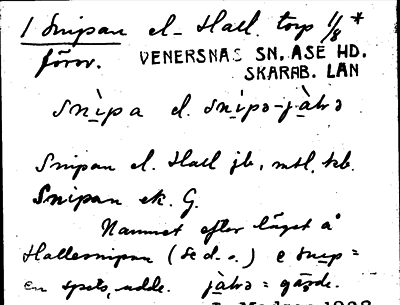 1 Snipan el. Hall. torp 1/8 *
förov. VENERSNAS SN. ASE HD.
SKARAB. LAN
snìpa el. snìpə-jàlrə
Snipan el. Hall jb, mtl. kb.
Snipan ek. G.
Namnet efter läget å
Hallersnipan (se d. o.) e snip =
en spets, udde. jàlrə = gärde.